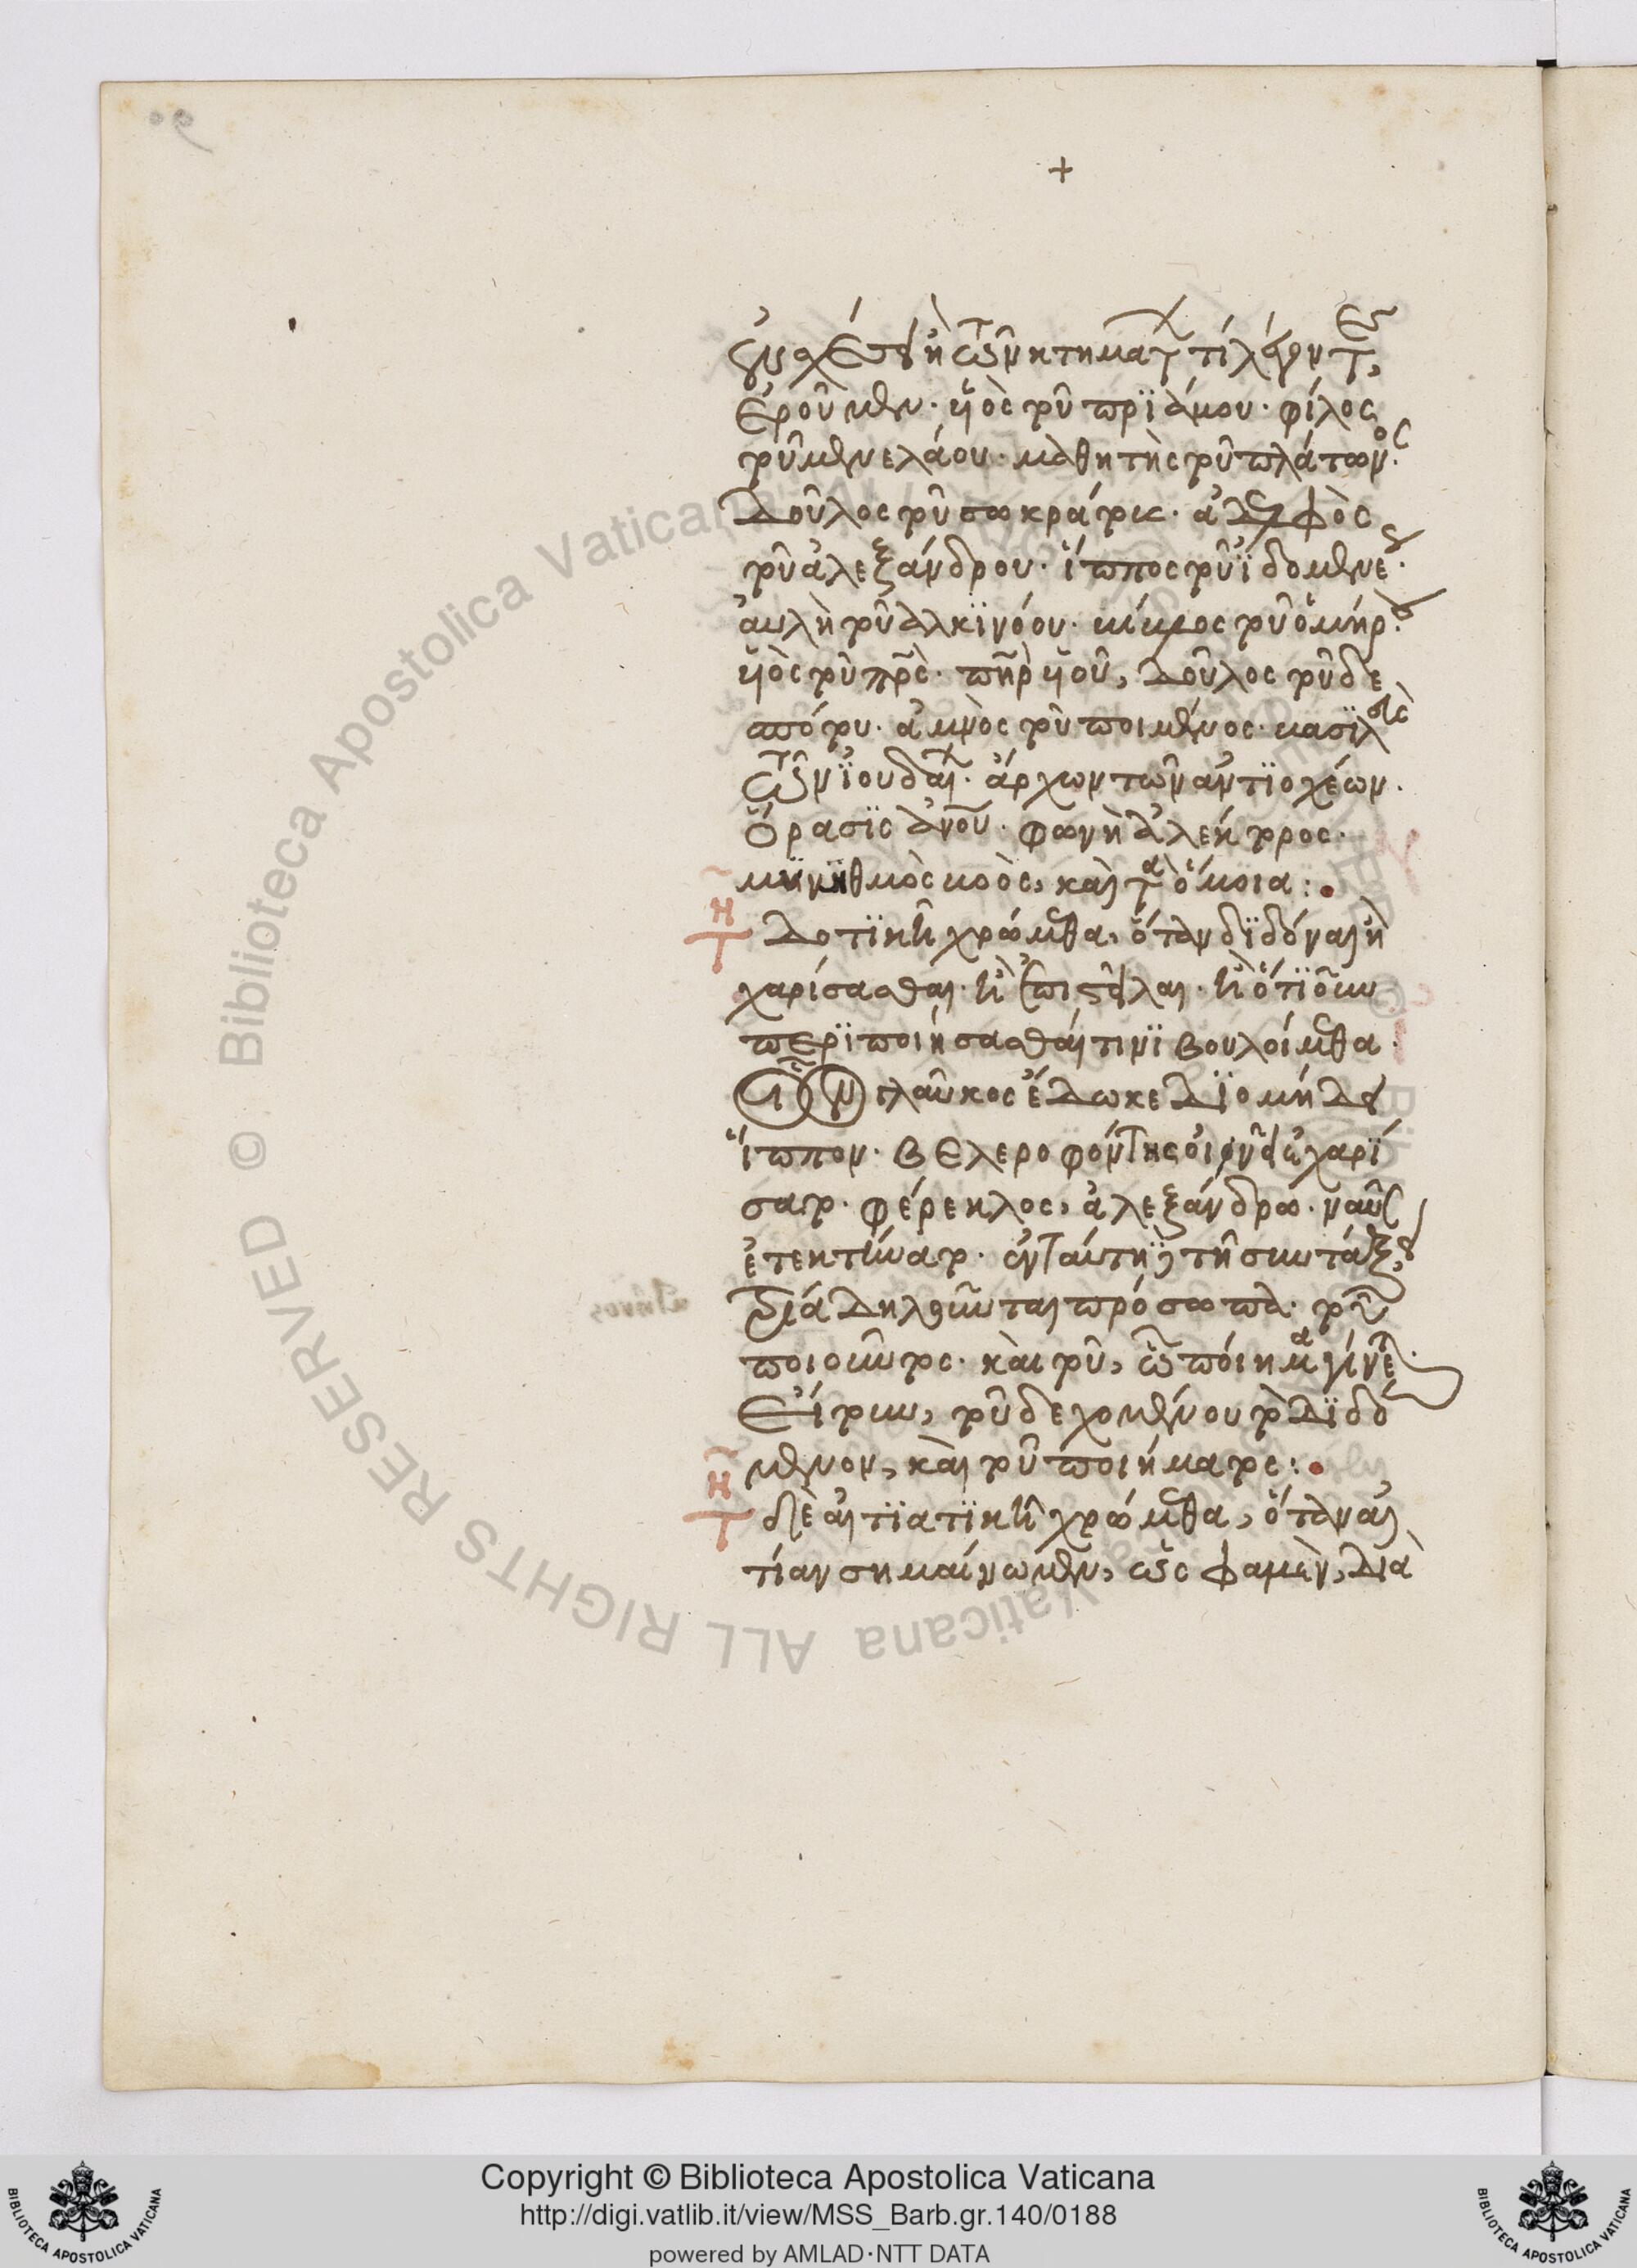 +
ἐν σχέσει ἢ τῶν κτημάτων τί λέγοντες,
ἐροῦμεν· ϋἱὸς τοῦ πρϊάμου· φίλος
τοῦ μενελάου· μαθητὴς τοῦ πλάτωνος·
δοῦλος τοῦ σωκράτους· ἀδελφὸς
τοῦ ἀλεξάνδρου· ἵππος τοῦ ϊδομενέως·
αὐλὴ τοῦ ἀλκϊνόου· κῆπος τοῦ ὁμήρου·
ϋἱὸς τοῦ πρς· πηρ ϋἱοῦ, δοῦλος τοῦ δε
σπότου· ἀμνὸς τοῦ ποιμένος· βασϊλεὺς
τῶν ϊουδαίων· ἄρχων τῶν ἀντϊοχέων·
ὅρασϊς ἀνου· φωνὴ ἀλέκτορος·
μυκηθμὸς βοὸς, καὶ τὰ ὅμοια:
Τῆ δοτϊκῆ χρώμεθα, ὅταν δϊδόναι ἢ
χαρίσασθαι· ἢ ἐπιστεῖλαι· ἢ ὁτϊοῦν
περϊποιήσασθαί τινϊ βουλοίμεθα·
οἷον γλαῦκος ἔδωκε δϊομήδει
ἵππον· βελεροφόντης οἰνεῖ ἐχαρί
σατο· φέρεκλος, ἀλεξάνδρω· ναῦς
ἐτεκτήνατο· ἐν ταύτη τῆ συντάξει,
τρία δηλοῦνται πρόσωπα· τοῦ
ποιοῦντος· καὶ τοῦ, ὧ πόιημα γίνεται·
εἴτουν, τοῦ δεχομένου τὸ δϊδό
μενον, καὶ τοῦ ποιήματος:
Τῆ δὲ αἰτϊατϊκῆ χρώμεθα, ὅταν αἰ
τίαν σημαίνωμεν, ὡς φαμὲν, διὰ
Copyright © Biblioteca Apostolica Vaticana
http://digi.vatlib.it/view/MSS_Barb.gr.140/0188
powered by AMLAD·NTT DATA
BIBLIOTECA APOSTOLICA VATICANA
BIBLIOTECA APOSTOLICA VATICANA
© Biblioteca Apostolica Vaticana ALL RIGHTS RESERVED